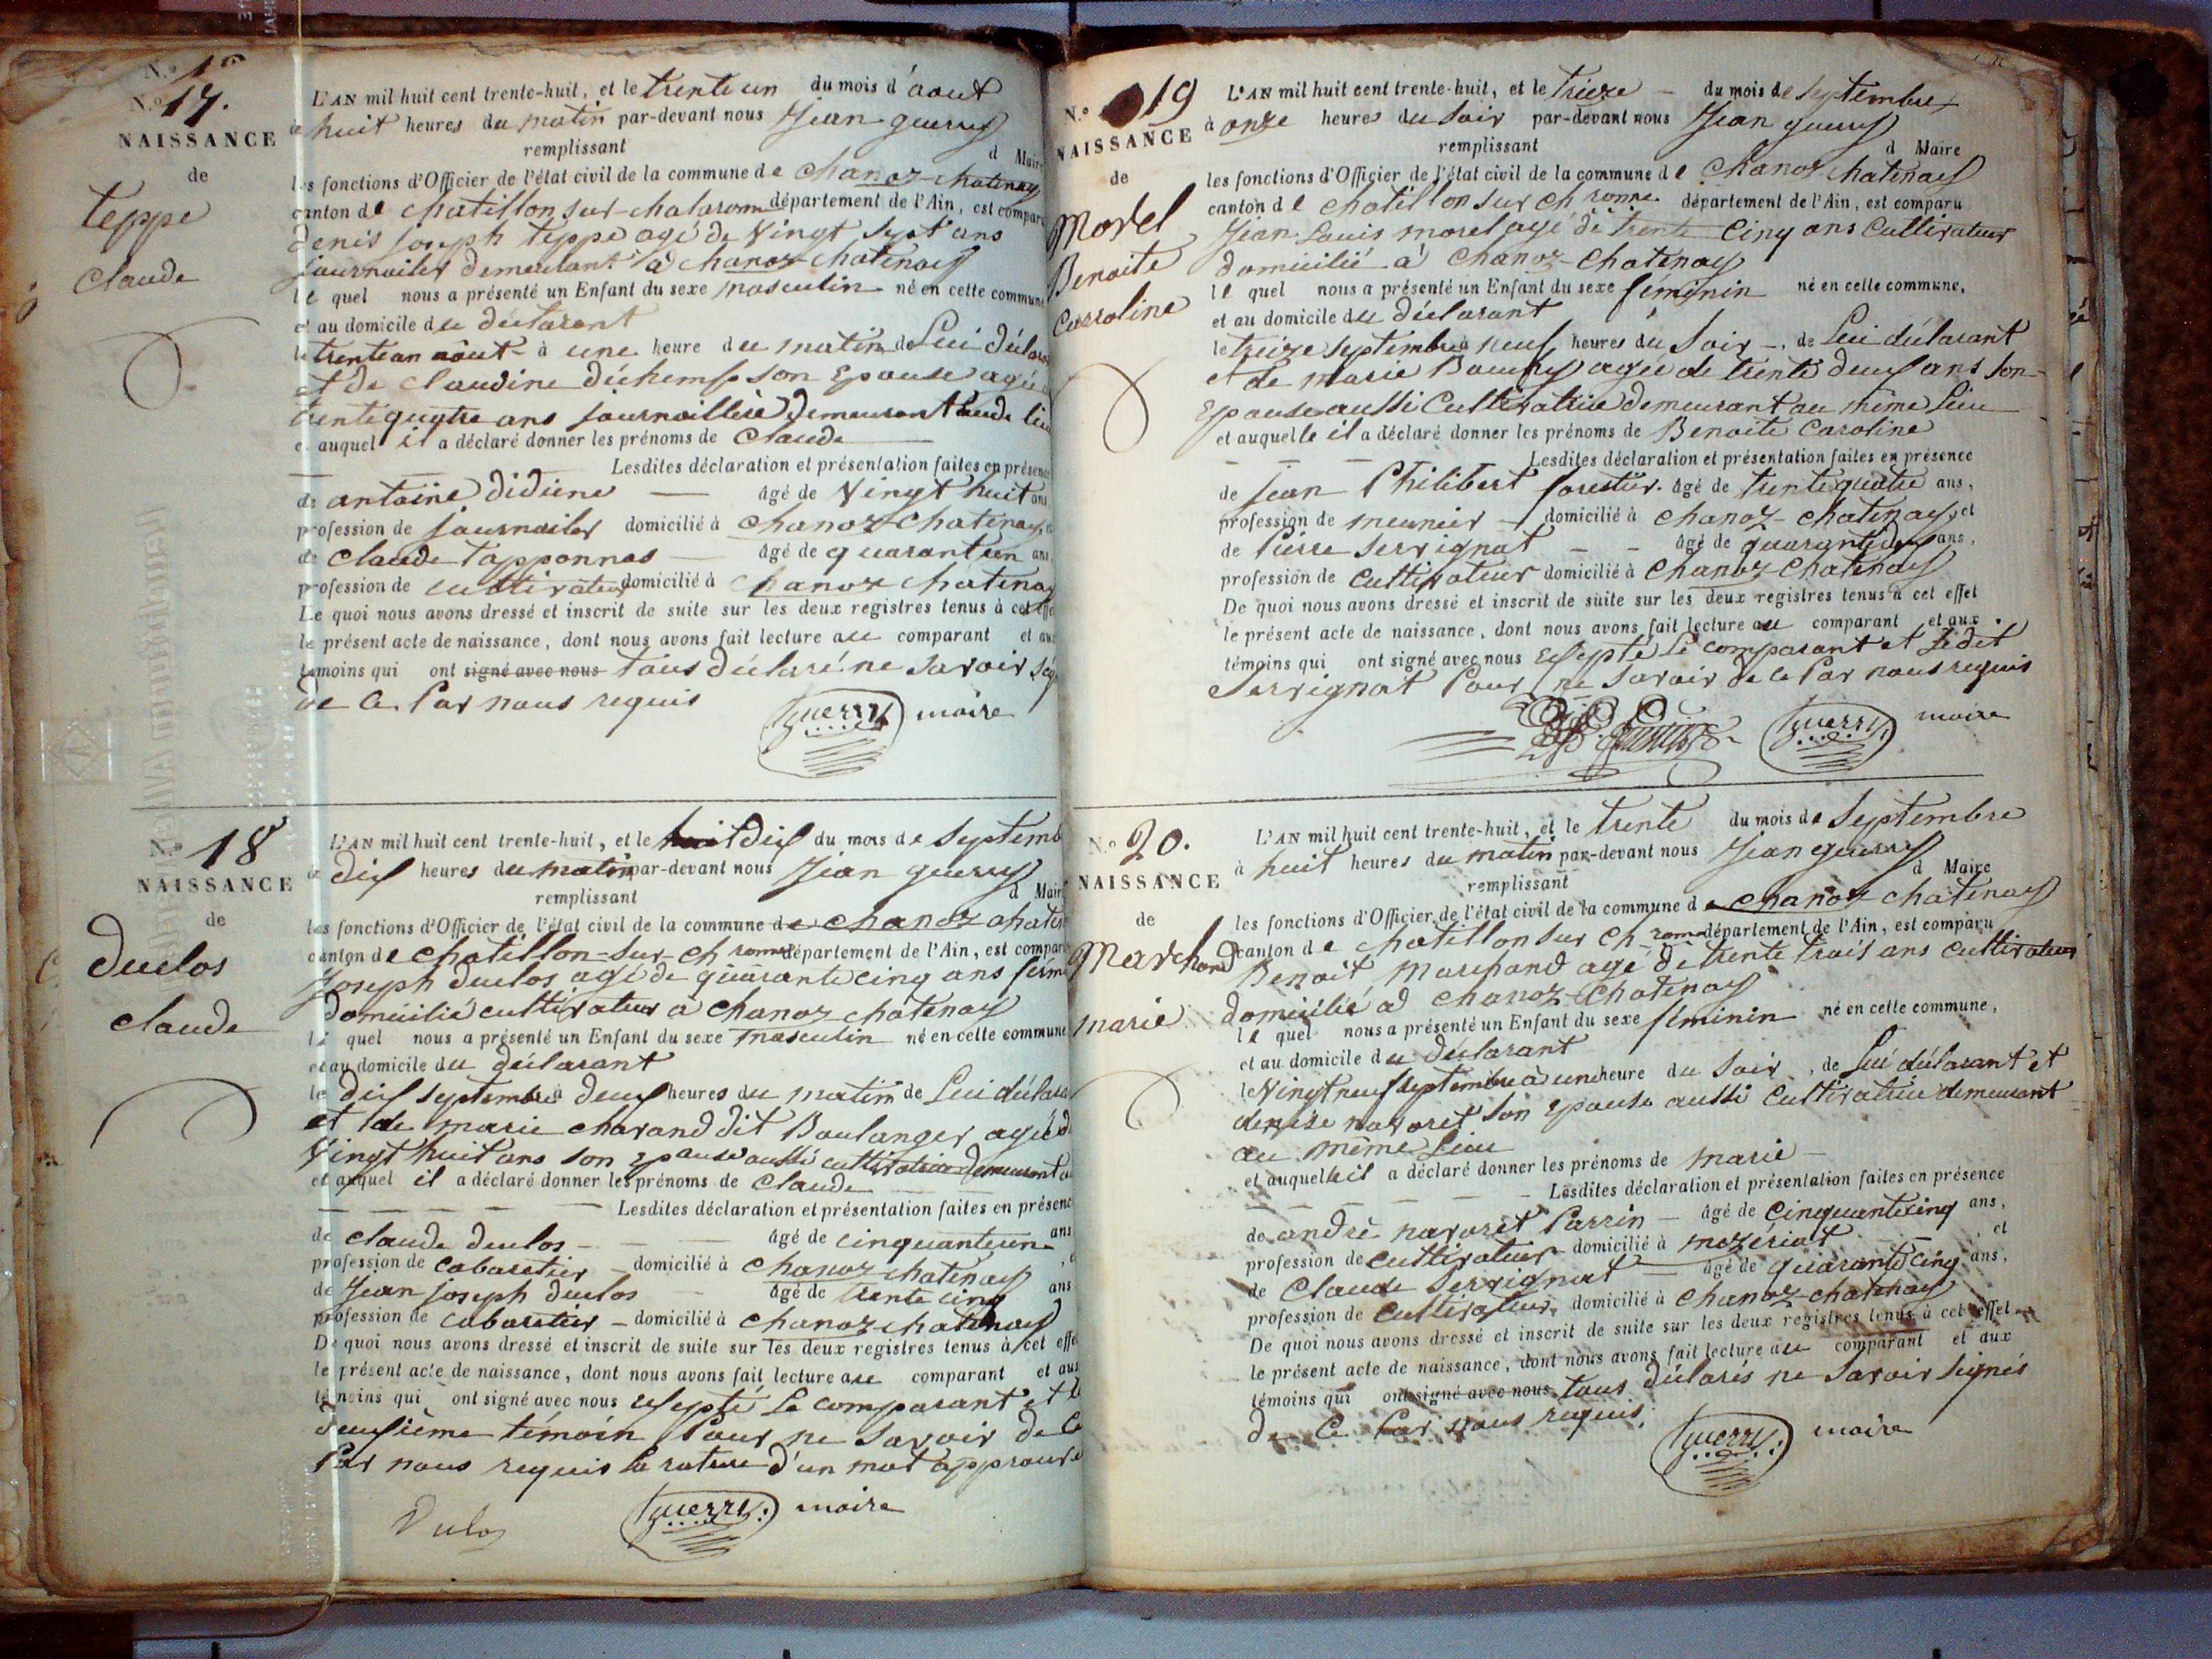 N.º 17.
NAISSANCE
de
teppe
claude
L'AN mil huit cent trente-huit, et le trente un du mois d'aout
à huit heures du matin par-devant nous Jean guerry
remplissant d Maire
les fonctions d'Officier de l'état civil de la commune de chanoz-chatenay
canton de chatillon sur-chalaronne département de l'Ain, est comparu
denis joseph teppe agé de vingt sept ans
journailer demeurant a chanoz-chatenay
le quel nous a présenté un Enfant du sexe masculin né en cette commune
et au domicile du déclarant
le trente un aout à une heure du matin de Lui déclara
et de claudine déchemp son Epouse agée
trente quatre ans journaillere demeurant audi lieu
et auquel il a déclaré donner les prénoms de claude
Lesdites déclaration et présentation faites en présence
de antoine didiene âgé de Vingt huit ans
profession de journailer domicilié à chanoz-chatenay,
de claude tapponnas âgé de quarant un ans
profession de cultivateur domicilié à chanoz chatenay
De quoi nous avons dressé et inscrit de suite sur les deux registres tenus à cet effet
le présent acte de naissance, dont nous avons fait lecture au comparant et aux
témoins qui ont signé avec nous tous déclaré ne savoir sig
de ce Par nous requis
guerry maire
N.º 18
NAISSANCE
de
duclos
claude
L'AN mil huit cent trente-huit, et le huit dix du mois de Septemb
à dix heures du matin par-devant nous Jean guerry
remplissant d Maire
les fonctions d'Officier de l'état civil de la commune de chanoz chaten
canton de chatillon-sur-ch ronne département de l'Ain, est comparu
Joseph duclos agé de quarante cinq ans
domicilié cultivateur a chanoz chatenay
le quel nous a présenté un Enfant du sexe masculin né en cette commune
et au domicile du déclarant
le dix septembre à deux heures du matin de Lui déclara
et de marie charand dit Boulanger agée d
Vingt huit ans son epouse aussi cultivatrice demeurant a
et auquel il a déclaré donner les prénoms de claude
Lesdites déclaration et présentation faites en présence
de claude duclos âgé de cinquante un ans
profession de cabaretier domicilié à chanoz chatenay,
de Jean joseph duclos âgé de trente cinq ans
profession de cabaretier domicilié à chanoz chatenay
De quoi nous avons dressé et inscrit de suite sur les deux registres tenus à cet effet
le présent acte de naissance, dont nous avons fait lecture au comparant et aux
témoins qui ont signé avec nous Excepté Le comparant et le
deuxième témoin Pour ne savoir de Ce
Par nous requis la rature d'un mot approuvé
Duclos guerry maire
N.º 19
NAISSANCE
de
Morel
Benoite
Carroline
L'AN mil huit cent trente-huit, et le treize du mois de Septembre
à onze heures du Soir par-devant nous Jean guerry
remplissant d Maire
les fonctions d'Officier de l'état civil de la commune de chanoz chatenay
canton de chatillon sur ch ronne département de l'Ain, est comparu
Jean Louis morel agé de trente Cinq ans Cultivateur
domicilié a chanoz-chatenay
le quel nous a présenté un Enfant du sexe féminin né en cette commune,
et au domicile du déclarant
le treize septembre à neuf heures du Soir de Lui déclarant
et de marie agée de trente deux ans Son
Epouse aussi Cultivatrice demeurant au même Lieu
et auquelle il a déclaré donner les prénoms de Benoite Caroline
Lesdites déclaration et présentation faites en présence
de jean Philibert forestier âgé de trente quatre ans,
profession de meunier domicilié à chanoz-chatenay, et
de Pierre Servignat âgé de quarante deux ans.
profession de Cultivateur domicilié à chanoz chatenay
De quoi nous avons dressé et inscrit de suite sur les deux registres tenus à cet effet
le présent acte de naissance, dont nous avons fait lecture au comparant et aux
témoins qui ont signé avec nous Excepté Le comparant et Ledit
Servignat Pour ne savoir de Ce Par nous requis
guerry maire
N.º 20.
NAISSANCE
de
Marchand
marie
L'AN mil huit cent trente-huit, et le trente du mois de Septembre
à huit heures du matin par-devant nous Jean guerry
remplissant d Maire
les fonctions d'Officier de l'état civil de la commune de chanoz chatenay
canton de chatillon sur ch ronne département de l'Ain, est comparu
Benoit Marchand agé de trente trois ans cultivateur
domicilié a chanoz-chatenay
le quel nous a présenté un Enfant du sexe féminin né en cette commune,
et au domicile du déclarant
le Vingt neuf septembre à une heure du Soir, de Lui déclarant et
denise navoret Son epouse aussi Cultivatrice demeurant
au même Lieu
et auquelle il a déclaré donner les prénoms de marie
Lesdites déclaration et présentation faites en présence
de andré navoret Parrin âgé de Cinquante Cinq ans,
profession de cultivateur domicilié à mezériat, et
de Claude Servignat âgé de quarante cinq ans,
profession de Cultivateur domicilié à chanoz-chatenay
De quoi nous avons dressé et inscrit de suite sur les deux registres tenus à cet effet
le présent acte de naissance, dont nous avons fait lecture au comparant et aux
témoins qui ont signé avec nous tous déclarés ne savoir signés
de Ce Par nous requis.
guerry maire